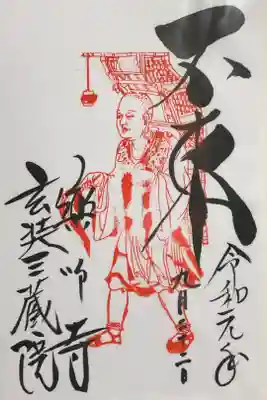 令和元年
九月二十二日
不東
薬師寺
玄奘三蔵院